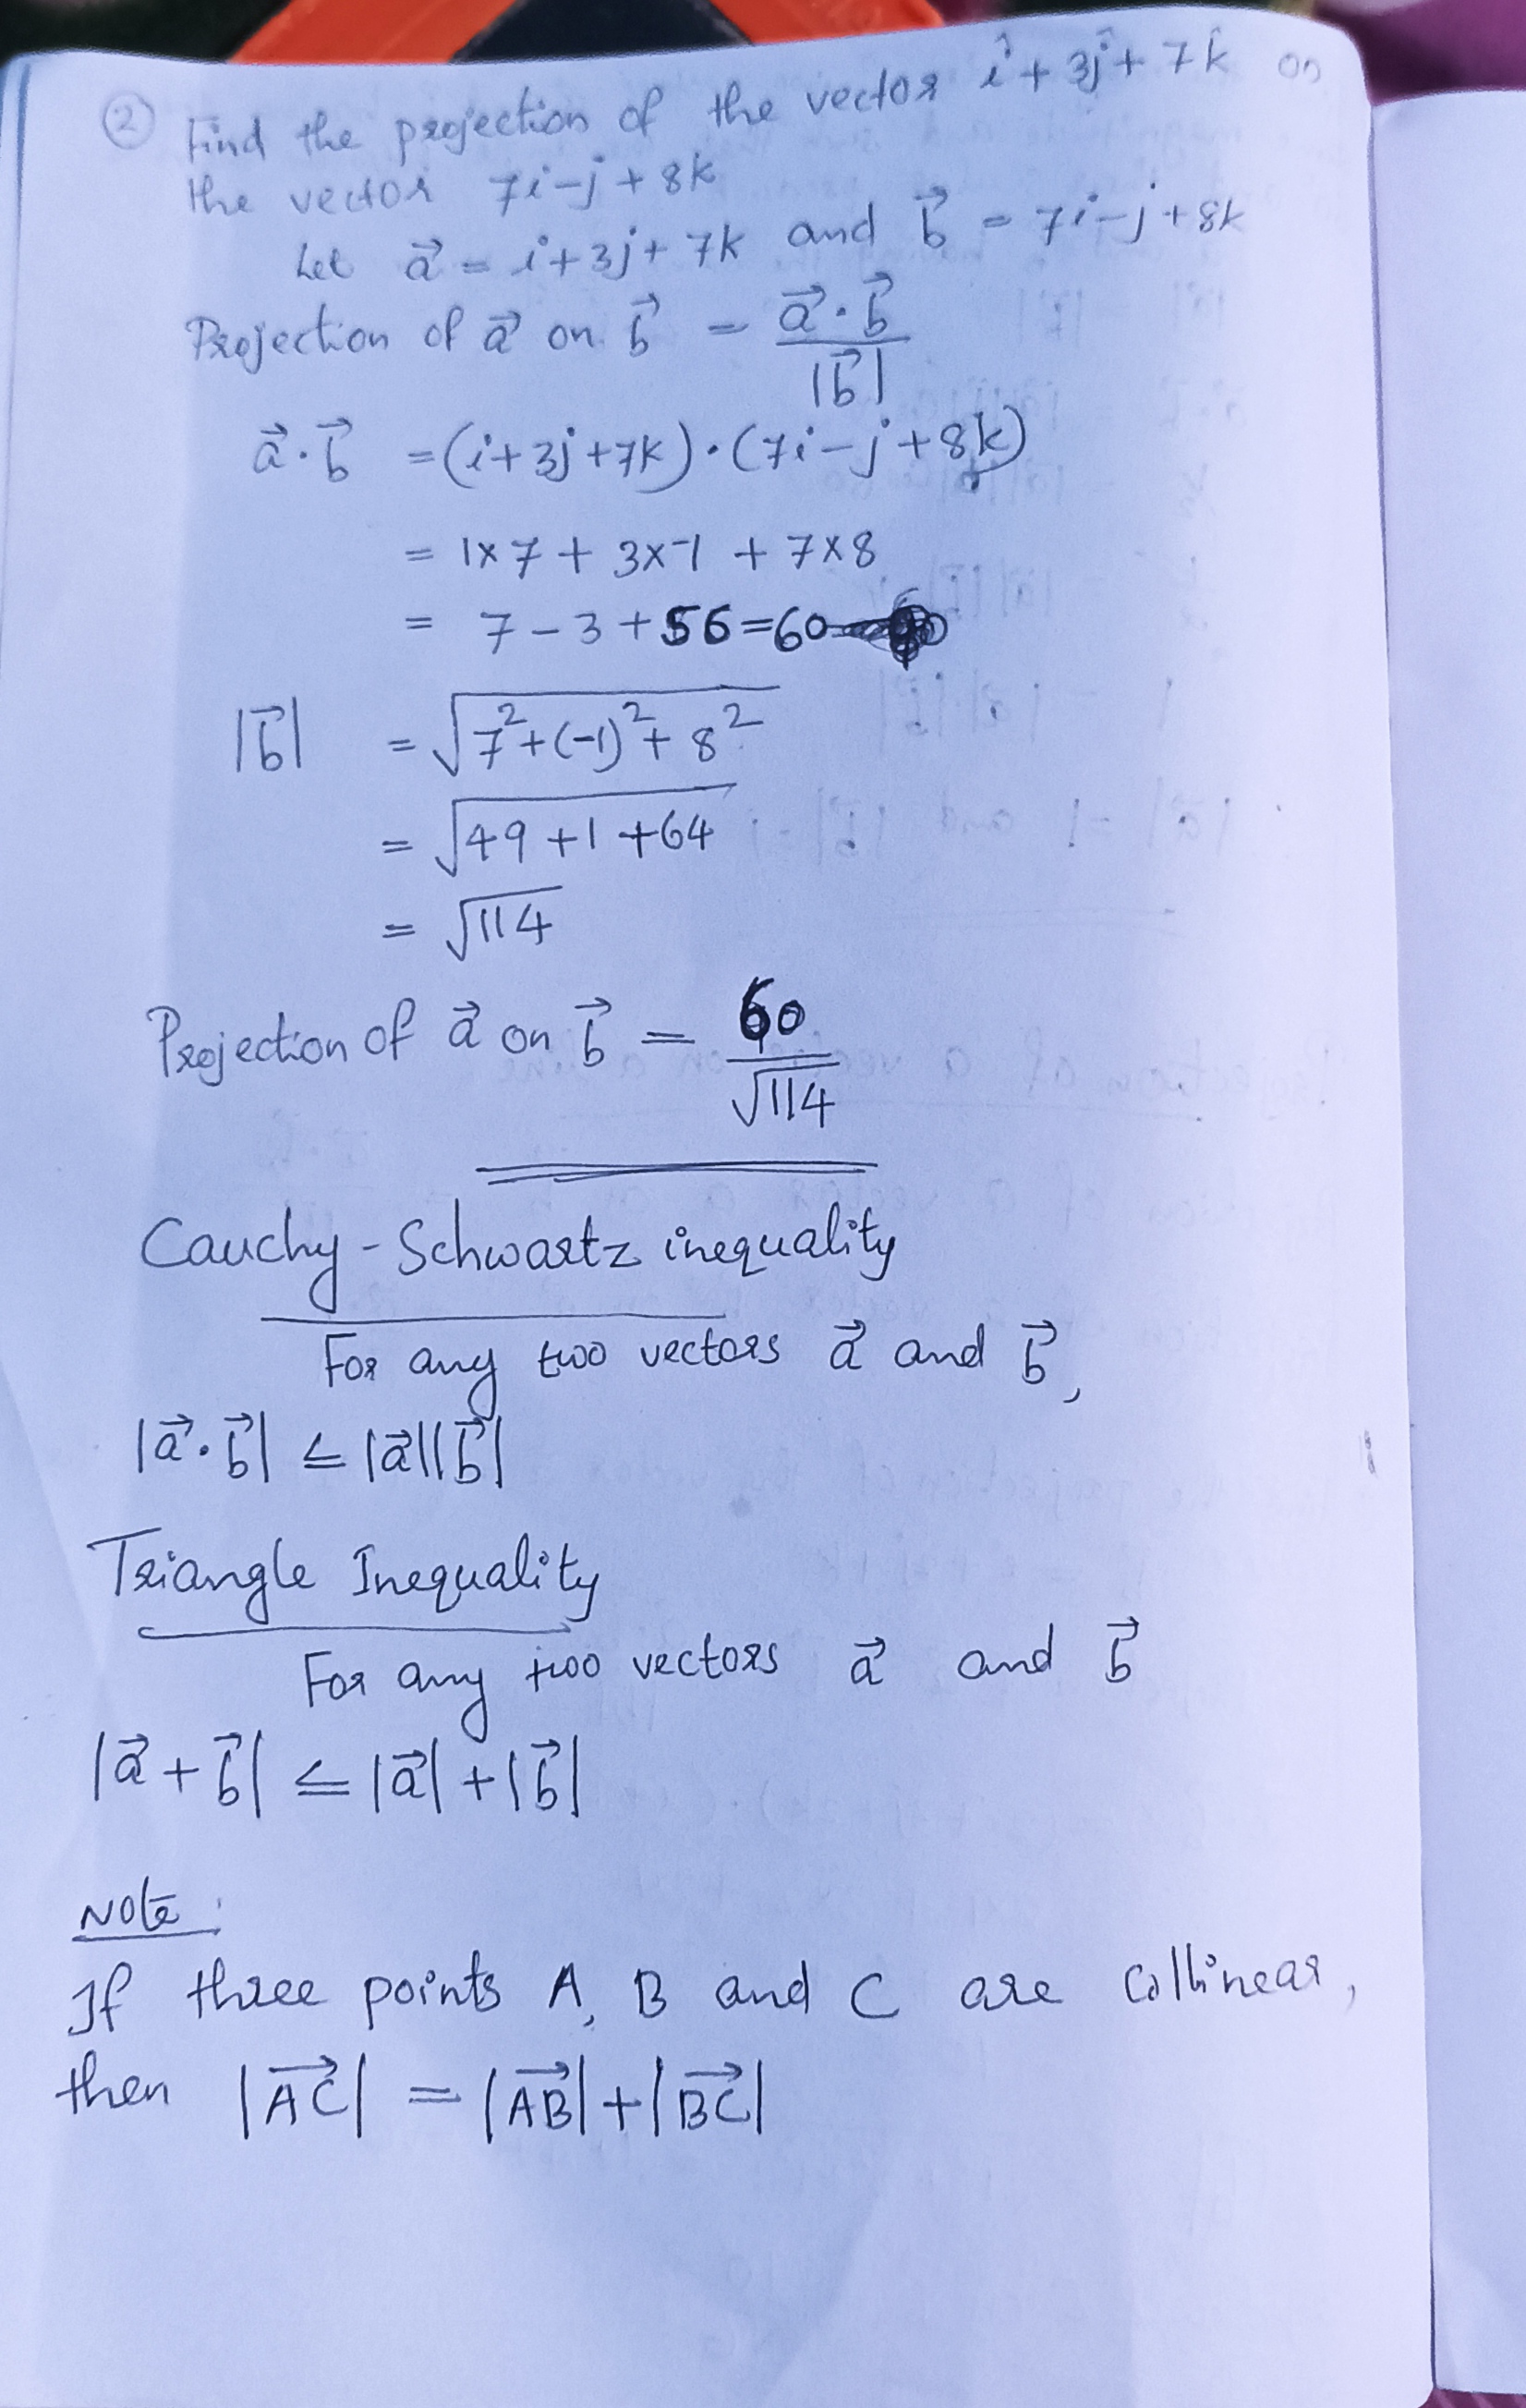 ② Find the projection of the vector î + 3ĵ + 7k̂ on
the vector 7i - j + 8k
Let a⃗ = i + 3j + 7k and b⃗ = 7i - j + 8k
Projection of a⃗ on b⃗ = a⃗ · b⃗ / |b⃗|
a⃗ · b⃗ = (i + 3j + 7k) · (7i - j + 8k)
= 1 × 7 + 3 × -1 + 7 × 8
= 7 - 3 + 56 = 60
|b⃗| = √(7² + (-1)² + 8²)
= √(49 + 1 + 64)
= √114
Projection of a⃗ on b⃗ = 60 / √114
Cauchy - Schwartz inequality
For any two vectors a⃗ and b⃗,
|a⃗ · b⃗| ≤ |a⃗||b⃗|
Triangle Inequality
For any two vectors a⃗ and b⃗
|a⃗ + b⃗| ≤ |a⃗| + |b⃗|
Note :
If three points A, B and C are collinear,
then |AC⃗| = |AB⃗| + |BC⃗|